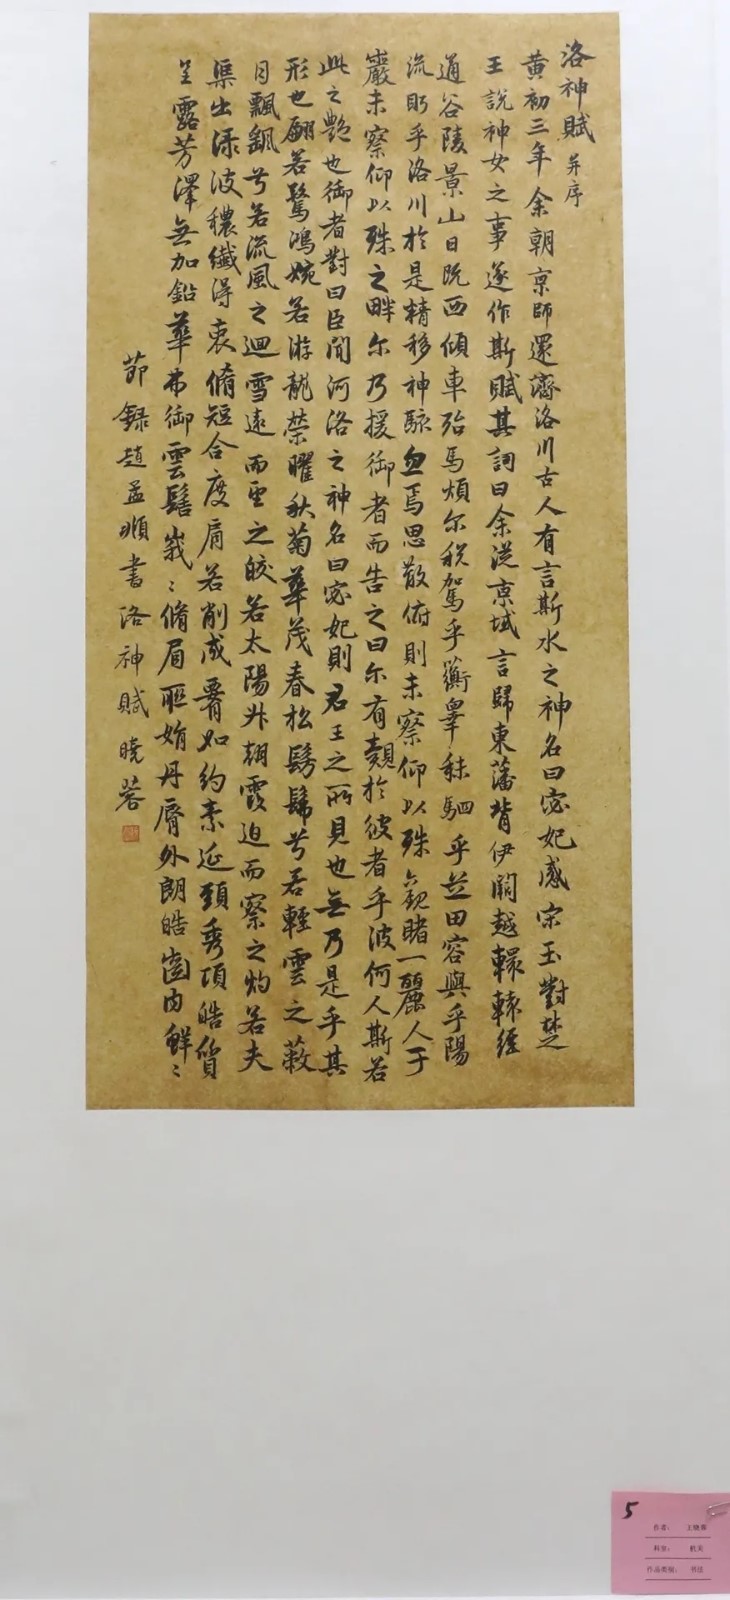 洛神賦并序
黃初三年余朝京師還濟洛川古人有言斯水之神名曰宓妃感宋玉對楚
王說神女之事遂作斯賦其詞曰余從京域言歸東藩背伊闕越轘轅經
通谷陵景山日既西傾車殆馬煩尔稅駕乎蘅皋秣駟乎芝田容與乎陽
流眄乎洛川於是精移神駭忽焉思散俯則未察仰以殊觀睹一麗人于
巖未察仰以殊之畔尔乃援御者而告之曰尔有覿於彼者乎波何人斯若
此之艷也御者對曰臣聞河洛之神名曰宓妃則君王之所見也無乃是乎其
形也翩若驚鴻婉若游龍榮曜秋菊華茂春松髣髴兮若輕雲之蔽
月飄颻兮若流風之迴雪遠而望之皎若太陽升朝霞迫而察之灼若夫
渠出渌波穠纖得衷脩短合度肩若削成署如約素延頸秀項皓質
呈露芳澤無加鉛華弗御雲髻峩〻脩眉聯娟丹脣外朗皓齒内鮮〻
節錄趙孟頫書洛神賦曉蓉
5
作者：
科室： 机关
作品类别： 书法